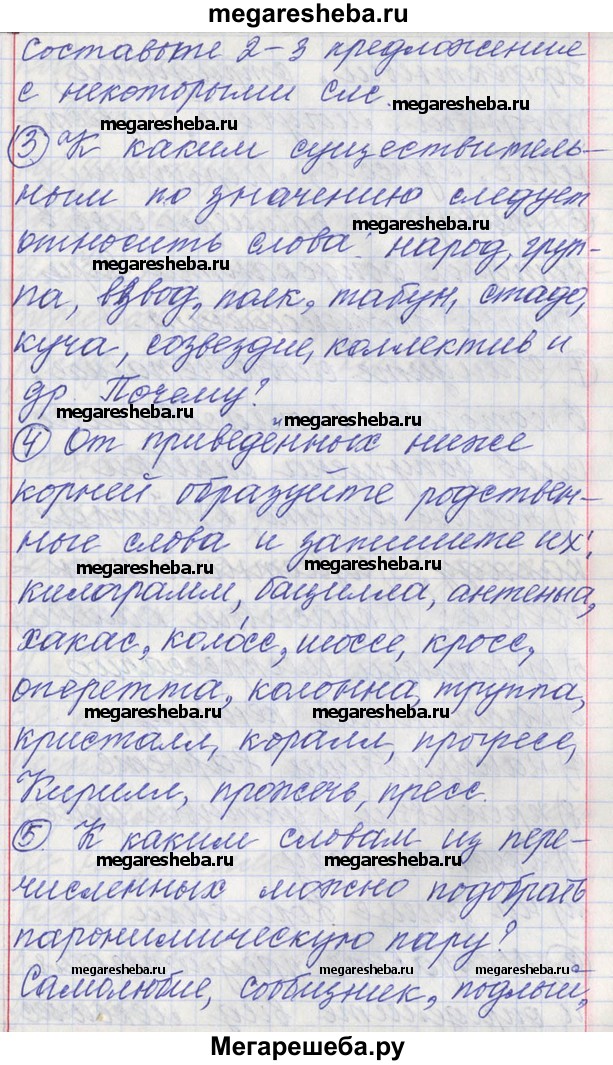 megaresheba.ru
составьте 2-3 предложение
с некоторыми слс.
megaresheba.ru
megaresheba.ru
③ К каким существитель-
ным по значению следует
megaresheba.ru
относить слова: народ, груп-
megaresheba.ru
па, взвод, полк, табун, стадо,
куча, созвездие, коллектив и
др. Почему?
megaresheba.ru
megaresheba.ru
④ От приведённых ниже
корней образуйте родствен-
ные слова и запишите их:
megaresheba.ru
megaresheba.ru
килограмм, бацилла, антенна,
хакас, коло́сс, шоссе, кросс,
оперетта, колонна, труппа,
megaresheba.ru
megaresheba.ru
кристалл, коралл, прогресс,
Кирилл, прожечь, пресс.
⑤ К каким словам из пере-
megaresheba.ru
megaresheba.ru
численных можно подобрать
паронимическую пару?
megaresheba.ru
megaresheba.ru
Самолюбие, сообщник, подлый,
Мегарешеба.ру